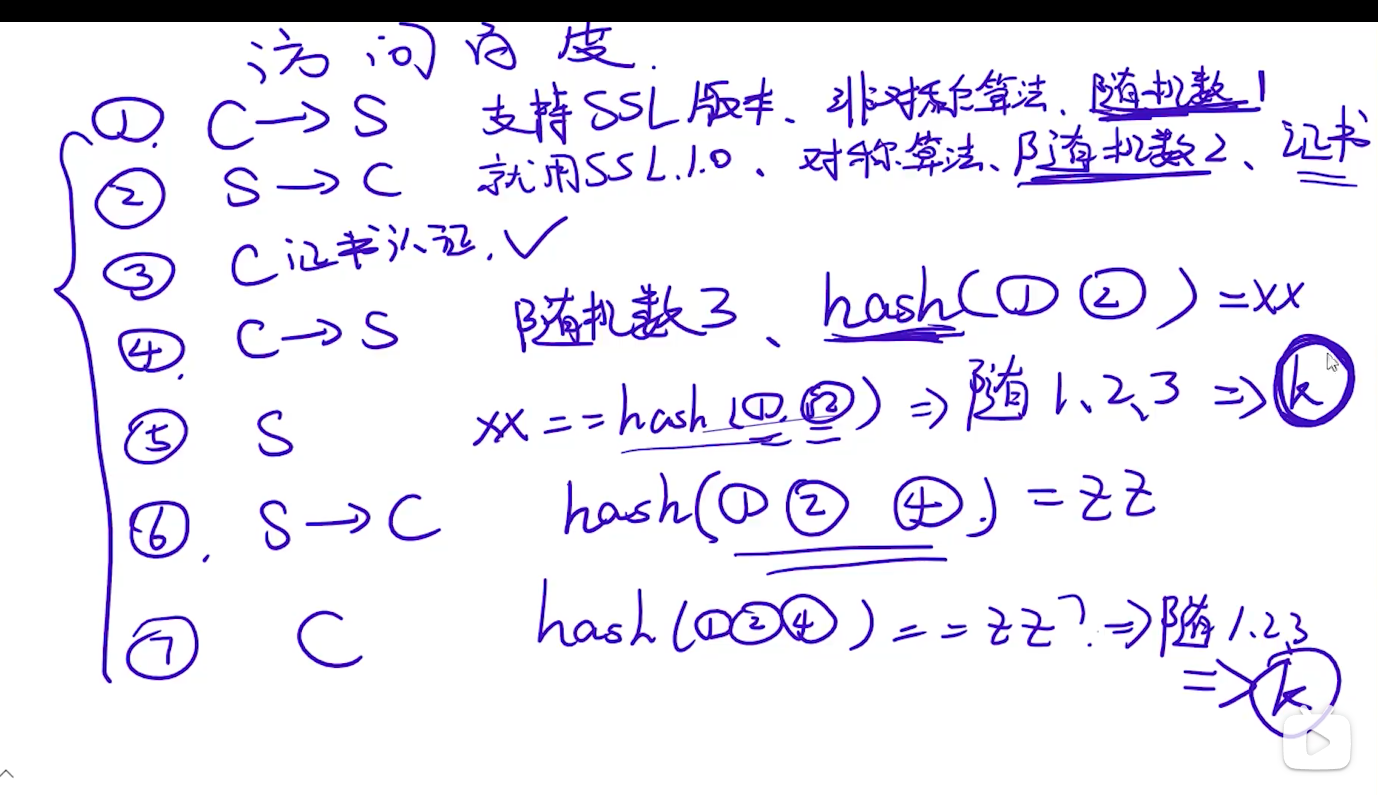 访问百度.
①. C→S 支持SSL版本、非对称算法、随机数1
② S→C 就用SSL.1.0、对称算法、随机数2、证书
③ C 证书认证. ✓
④. C→S 随机数3、hash(①②)=xx
⑤ S xx==hash(①.②)⇒随1、2、3⇒k
⑥. S→C hash(①②④.)=zz
⑦ C hash(①②④)==zz?⇒随1.2.3
⇒k